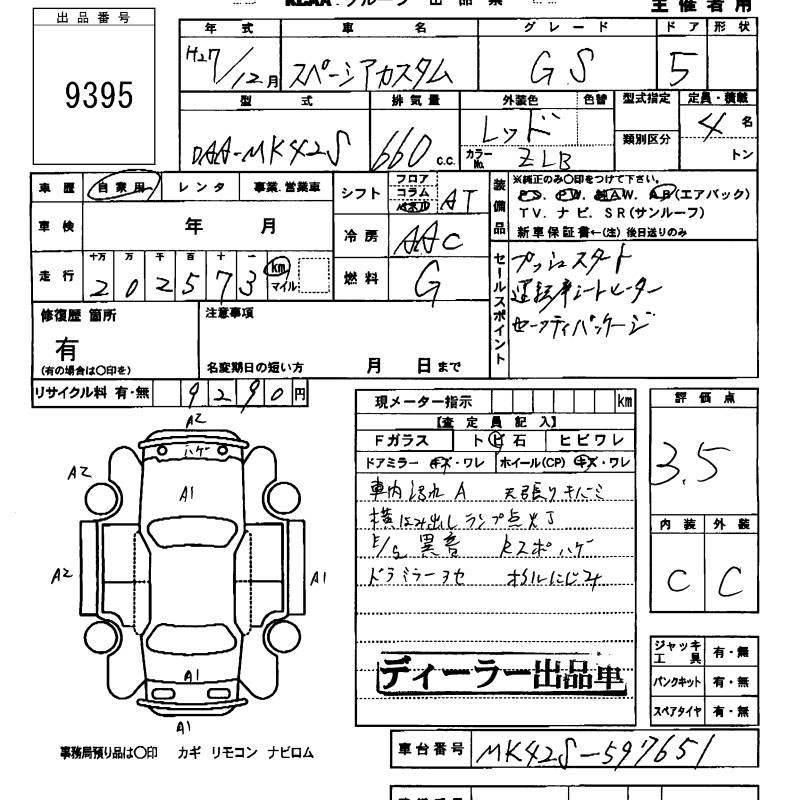 KCAA グループ 出品票
主催者用
出品番号
9395
年式 車名 グレード ドア 形状
H27/12月 スペーシアカスタム GS 5
型式 排気量 外装色 色替 型式指定 定員・積載
DAA-MK42S 660 c.c. レッド 類別区分 4名
カラーNo. ZLB トン
車歴 自家用 レンタ 事業.営業車
シフト フロア コラム AT
車検 年 月
冷房 AAC
走行 十万 万 千 百 十 一
202573 km マイル
燃料 G
装備品 ※純正のみ〇印をつけて下さい。
PS. PW. AW. AB(エアバック)
TV. ナビ. SR(サンルーフ)
新車保証書←(注)後日送りのみ
セールスポイント
プッシュスタート
運転席シートヒーター
セーフティパッケージ
修復歴 箇所
有
(有の場合は〇印を)
注意事項
名変期日の短い方 月 日まで
リサイクル料 有・無 9290円
現メーター指示 km
【査定員記入】
Fガラス トビ石 ヒビワレ
ドアミラー キズ・ワレ ホイール(CP) キズ・ワレ
車内よごれ A 天張りキバミ
横はみ出しランプ点灯
E/g 異音 ハゲ
ドラミラー オイルにじみ
ディーラー出品車
評価点
3.5
内装 外装
C C
A2
ハゲ
A2
A1
A2
A1
A1
A1
ジャッキ工具 有・無
パンクキット 有・無
スペアタイヤ 有・無
事務局預り品は〇印 カギ リモコン ナビロム
車台番号 MK42S-597651